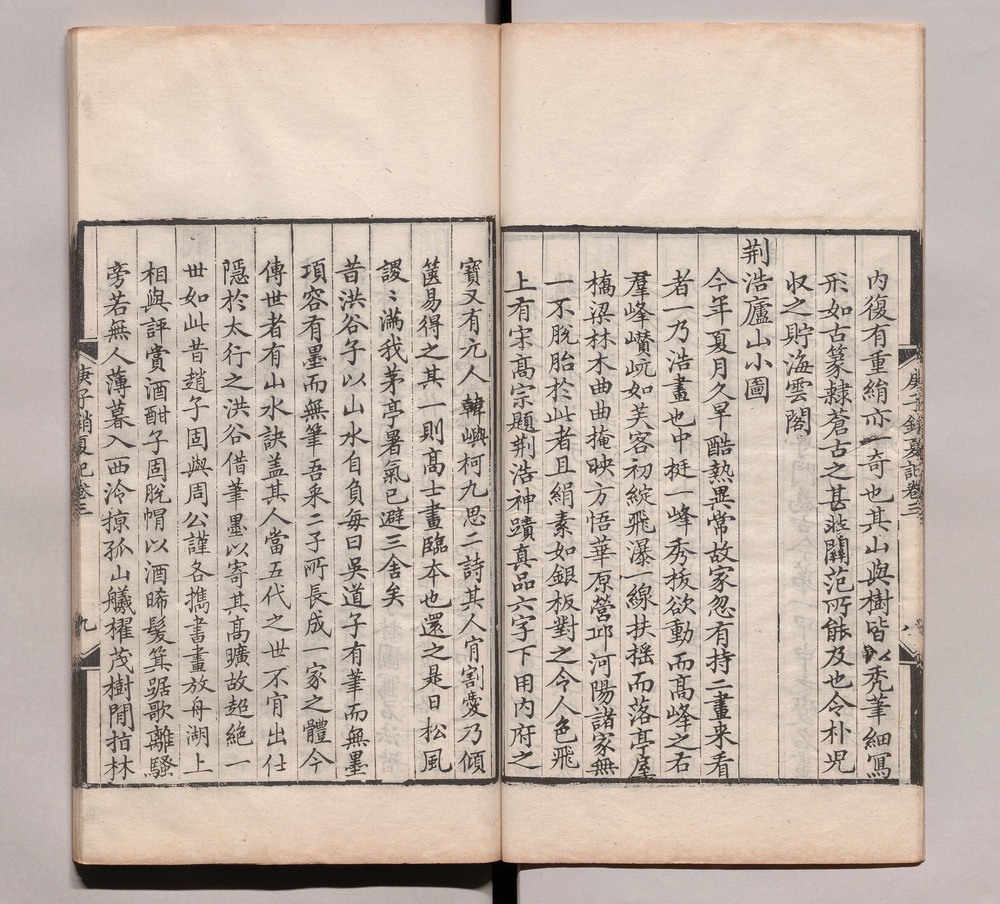 內復有重絹亦一奇也其山與樹皆以秃筆細寫
形如古篆隸蒼古之甚非關范所能及也令朴児
収之貯海雲閣
荆浩廬山小圖
今年夏月久旱酷熱異常故家忽有持二畫来看
者一乃浩畫也中挺一峰秀拔欲動而高峰之右
羣峰巑岏如芙容初綻飛瀑一線扶摇而落亭屋
橋梁林木曲曲掩映方悟華原營邱河陽諸家無
一不脫胎於此者且絹素如銀板對之令人色飛
上有宋髙宗題荆浩神蹟真品六字下用內府之
寳又有元人韓嶼柯九思二詩其人肎割愛乃傾
篋易得之其一則髙士畫臨本也還之是日松風
謖〻滿我茅亭暑氣已避三舍矣
昔洪谷子以山水自負每曰吳道子有筆而無墨
項容有墨而無筆吾采二子所長成一家之體今
傳世者有山水訣盖其人當五代之世不肎出仕
隱於太行之洪谷借筆墨以寄其髙曠故超絶一
世如此昔趙子固與周公謹各擕書畫放舟湖上
相與評賞酒酣子固脫帽以酒晞髮箕踞歌離騷
旁若無人薄暮入西泠掠孤山艤櫂茂樹間指林
庚子銷夏記卷三
八
庚子銷夏記卷三
九